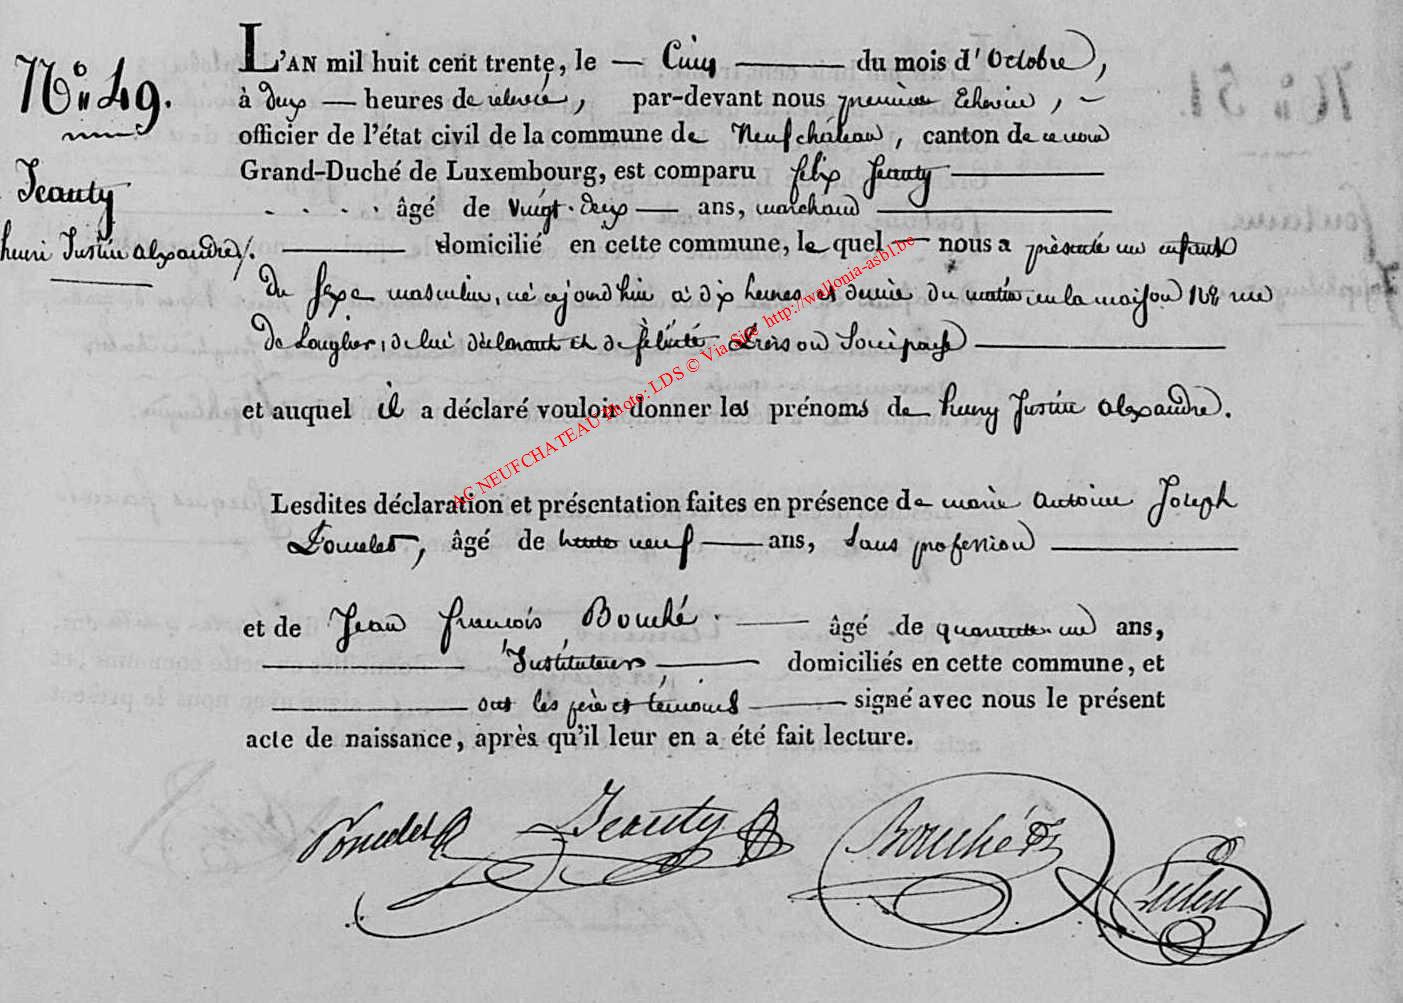 N° 49.
Jeanty
henri Justin alexandre /.
L'AN mil huit cent trente, le — Cinq — du mois d'Octobre,
à deux — heures de relevée, par-devant nous premier Echevin, —
officier de l'état civil de la commune de Neufchâteau, canton de ce nom
Grand-Duché de Luxembourg, est comparu félix Jeanty —
. . . . âgé de Vingt-deux — ans, marchand —
— domicilié en cette commune, le quel — nous a présenté un enfant
du sexe masculin, né aujourd'hui à dix heures et demie du matin en la maison 108 rue
de Longlier, de lui déclarant et de félicité son épouse —
et auquel il a déclaré vouloir donner les prénoms de henry Justin alexandre.
Lesdites déclaration et présentation faites en présence de marie antoine Joseph
Poncelet, âgé de trente neuf — ans, Sans profession —
et de Jean françois Bouché — âgé de quarante un ans,
— Instituteur — domiciliés en cette commune, et
— ont les père et témoins — signé avec nous le présent
acte de naissance, après qu'il leur en a été fait lecture.
Poncelet Jeanty Bouché
AC NEUFCHATEAU Photo: LDS © Via Site http://wallonia-asbl.be